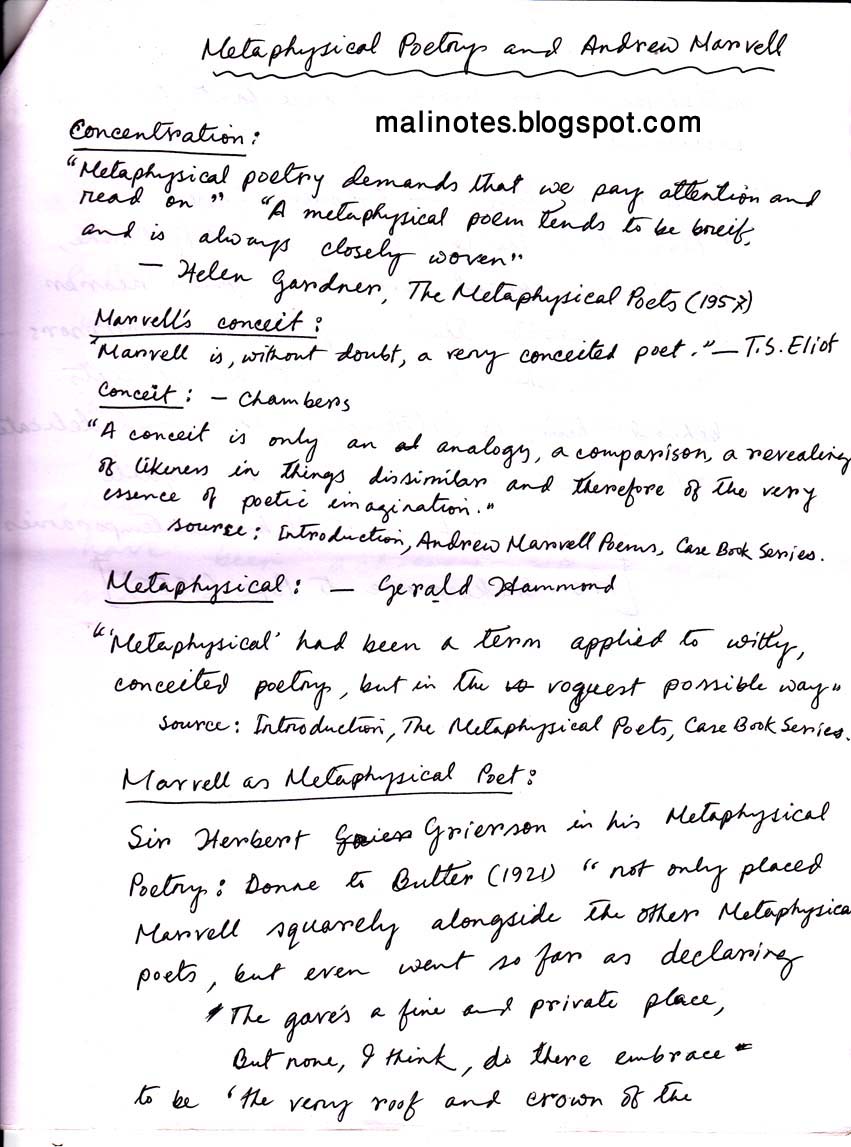 Metaphysical Poetry and Andrew Marvell
malinotes.blogspot.com
Concentration:
"Metaphysical poetry demands that we pay attention and
read on" "A metaphysical poem tends to be breif,
and is always closely woven"
— Helen Gardner, The Metaphysical Poets (1957)
Marvell's conceit:
"Marvell is, without doubt, a very conceited poet." — T.S. Eliot
Conceit: — Chambers
"A conceit is only an analogy, a comparison, a revealing
of likeness in things dissimilar and therefore of the very
essence of poetic imagination."
source: Introduction, Andrew Marvell Poems, Case Book Series.
Metaphysical: — Gerald Hammond
"'Metaphysical' had been a term applied to witty,
conceited poetry, but in the voguest possible way"
source: Introduction, The Metaphysical Poets, Case Book Series.
Marvell as Metaphysical Poet:
Sir Herbert Grierson in his Metaphysical
Poetry: Donne to Butter (1921) "not only placed
Marvell squarely alongside the other Metaphysica
poets, but even went so far as declaring
"The gave's a fine and private place,
But none, I think, do there embrace"
to be 'the very roof and crown of the